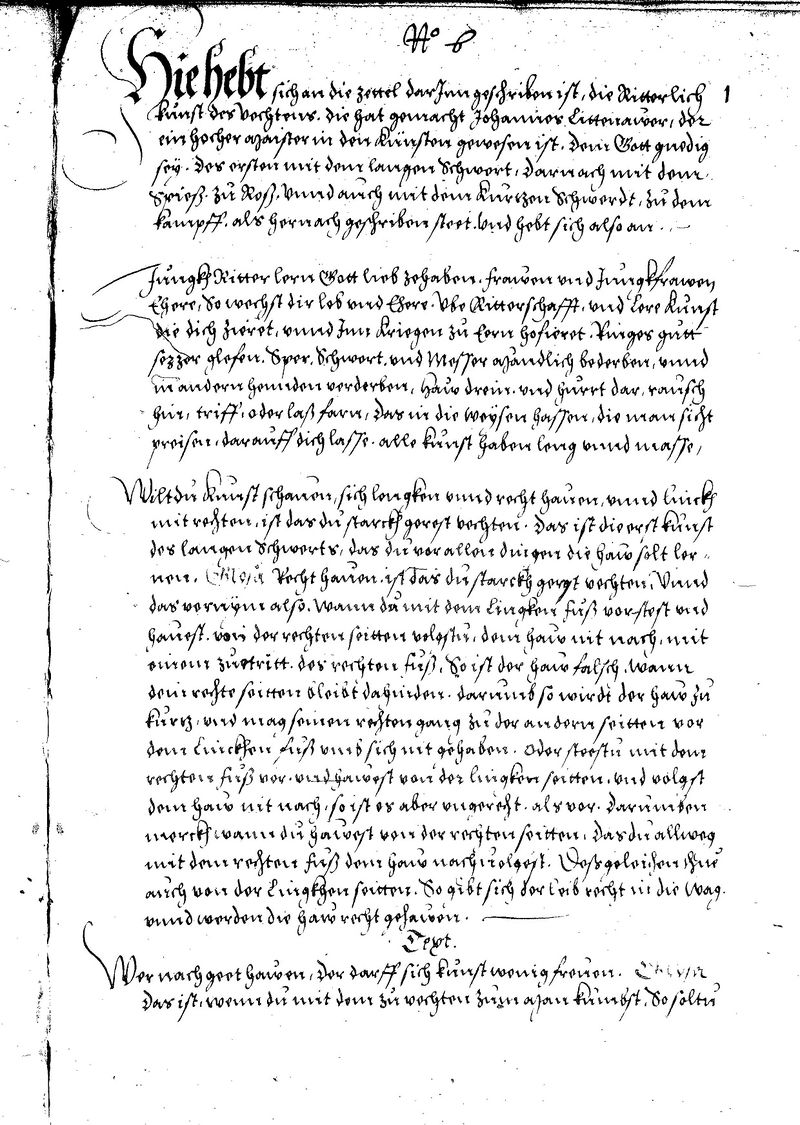 No 6
Hie hebt sich an die zettel dar Jnn geschriben ist, die Ritterlich 1
kunst des vechtens. die hat gemacht Johannes Littenawer, der
ein hocher maister in den Künsten gewesen ist. dem Gott gnedig
sey. des ersten mit dem langen Schwert, darnach mit dem
Spiess. zu Ross. vnnd auch mit dem kurtzen Schwerdt, zu dem
kampff. als hernach geschriben steet. vnd hebt sich also an.
Jungkh Ritter lern Gott lieb zehaben. frawen vnd Jungkfrawen
Ehere, so wechst dir lob vnd Ehere. Vbe Ritterschafft, vnd lere kunst
die dich zieret, vnnd Jnn Kriegen zu Eern hofieret. Ringes gutt
fezzer glefen. Sper, Schwert. vnd Messer mandlich bederben, vnnd
in andern henden verderben, haw drein. vnd hurrt dar, rausch
hin, triff, oder lass farn, das in die weysen hassen, die man sicht
preisen, darauff dich lasse. alle kunst haben leng vnnd masse,
Wilt du Kunst schauen, sich lengken vnnd recht hauen, vnnd linckh
mit rechten, ist das du starckh gerest vechten. das ist die erst kunst
des langen Schwerts, das du vor allen dingen die haw solt ler-
nen. Glosa Recht hauen. ist das du starckh gergt vechten, Vnnd
das vernym also. wann du mit dem Lingken fuß vor stest vnd
hauest. von der rechten seitten volgstu, dem haw nit nach, mit
einem zuetritt. des rechten fuß, So ist der haw falsch, wann
dein rechte seitten bleibt dahinden. darumb so wirdt der haw zu
kurtz, vnd mag seinen rechten gang zu der andern seitten vor
dem Linckhen fuß vmb sich nit gehaben. Oder steestu mit dem
rechten fuß vor. vnd hawest von der lingken seitten, vnd volgst
dem haw nit nach, so ist es aber vngerecht. als vor. Darumben
merckh wann du hawest von der rechten seitten, das du allweg
mit dem rechten fuß dem haw nach uolgest. Dessgeleichen thue
auch von der Lingkhen seitten. So gibt sich der leib recht in die wag.
vnnd werden die haw recht gehawen.
Text.
Wer nach geet hawen, der darff sich kunst wenig freuen. Glosa
das ist, wenn du mit dem zu vechten zum man kumbst. So soltu